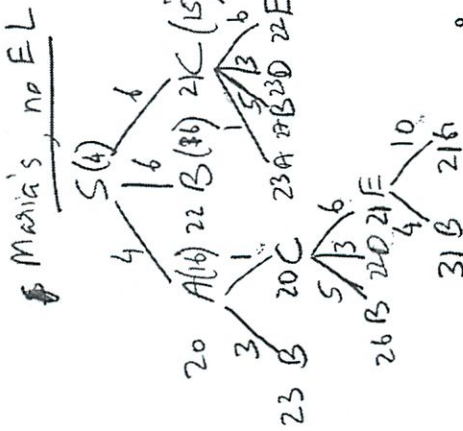 Maria's, no EL
S(4)
4 6 6
20 A(16) 22 B( 21 C(15
3 1 5 3 6
23 B 20 C 23 A B 23 D 22 E
5 3 6
26 B 22 D 21 E
4 10
31 B 21 G